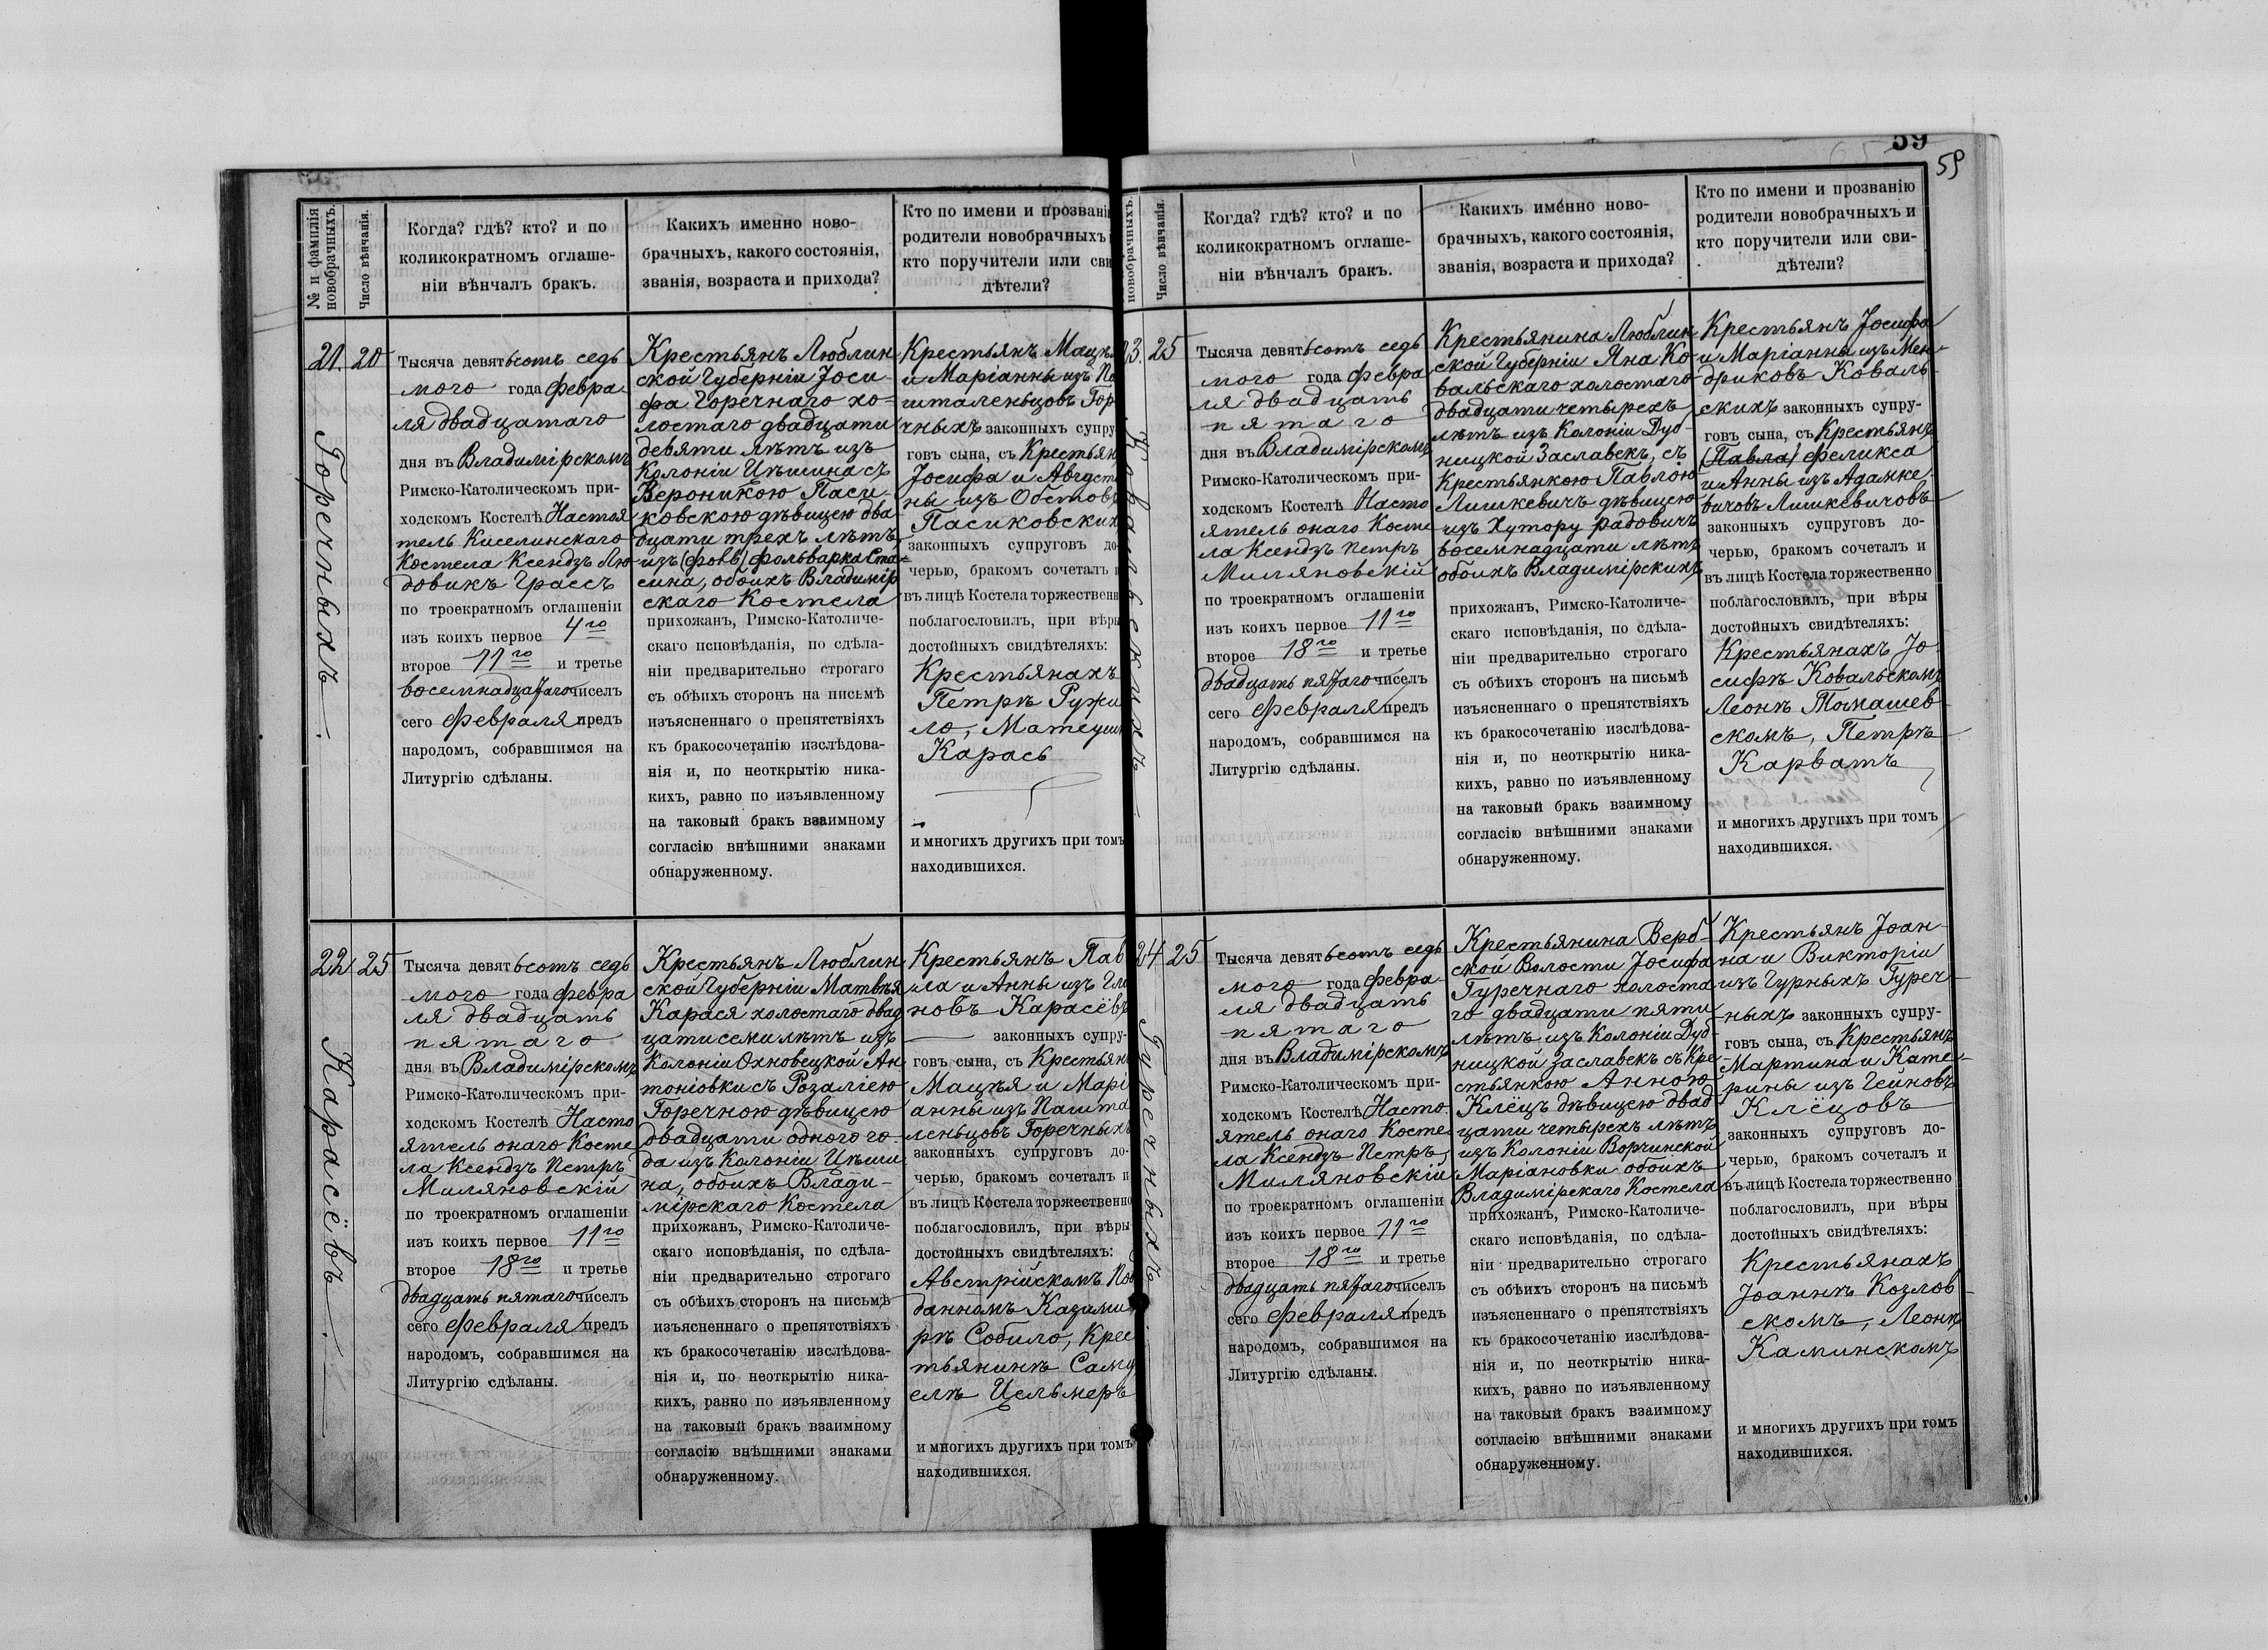 39
59
№ и фамилія
новобрачныхъ.
Число вѣнчанія.
Когда? гдѣ? кто? и по
коликократномъ оглаше-
ніи вѣнчалъ бракъ.
Какихъ именно ново-
брачныхъ, какого состоянія,
званія, возраста и прихода?
Кто по имени и прозванію
родители новобрачныхъ
кто поручители или сви
дѣтели?
21.
Горечныхъ
20
Тысяча девятьсотъ седь
мого года Февра
ля двадцатаго
дня въ Владимірскомъ
Римско-Католическомъ при-
ходскомъ Костелѣ Настоя
тель Киселинскаго
Костела Ксендзъ Лю
довикъ Грассъ
по троекратномъ оглашеніи
изъ коихъ первое 4го
второе 11го и третье
восемнадцатаго чиселъ
сего Февраля предъ
народомъ, собравшимся на
Литургію сдѣланы.
Крестьянъ Люблин
ской Губерніи Іоси-
фа Горечнаго хо-
лостаго двадцати
девяти лѣтъ изъ
Колоніи Цѣшина съ
Вероникою Паси-
ковскою дѣвицею два
дцати трехъ лѣтъ
изъ (фолв) фольварка Ста-
сина, обоихъ Владимір
скаго Костела
прихожанъ, Римско-Католиче-
скаго исповѣданія, по сдѣла-
ніи предварительно строгаго
съ обѣихъ сторонъ на письмѣ
изъясненнаго о препятствіяхъ
къ бракосочетанію изслѣдова-
нія и, по неоткрытію ника-
кихъ, равно по изъявленному
на таковый бракъ взаимному
согласію внѣшними знаками
обнаруженному.
Крестьянъ Мацѣ
и Маріанны изъ Па
шталеньцовъ Гор
чныхъ законныхъ супру
говъ сына, съ Крестьян
Іосифа и Августи
ны изъ Обстовъ
Пасиковских
законныхъ супруговъ до
черью, бракомъ сочеталъ и
въ лицѣ Костела торжественн
поблагословилъ, при вѣры
достойныхъ свидѣтеляхъ:
Крестьянахъ
Петрѣ Ружи
ло, Матеуш
Карась
и многихъ другихъ при томъ
находившихся.
22
Карасёвъ
25
Тысяча девятьсотъ седь
мого года Февра
ля двадцать
пятаго
дня въ Владимірскомъ
Римско-Католическомъ при-
ходскомъ Костелѣ Насто
ятель онаго Косте
ла Ксендзъ Петръ
Миляновскій
по троекратномъ оглашеніи
изъ коихъ первое 11го
второе 18го и третье
двадцать пятаго чиселъ
сего Февраля предъ
народомъ, собравшимся на
Литургію сдѣланы.
Крестьянъ Люблин
ской Губерніи Матвѣя
Карася холостаго двад
цати семи лѣтъ изъ
Колоніи Охновецкой Ан
тоніовки съ Розаліею
Горечною дѣвицею
двадцати одного го-
да изъ Колоніи Цѣши
на, обоихъ Влади-
мірскаго Костела
прихожанъ, Римско-Католиче-
скаго исповѣданія, по сдѣла-
ніи предварительно строгаго
съ обѣихъ сторонъ на письмѣ
изъясненнаго о препятствіяхъ
къ бракосочетанію изслѣдова-
нія и, по неоткрытію ника-
кихъ, равно по изъявленному
на таковый бракъ взаимному
согласію внѣшними знаками
обнаруженному.
Крестьянъ Пав
ла и Анны изъ Гла
новъ Карасёвъ
законныхъ супру-
говъ сына, съ Крестьян
Мацѣя и Марі
анны изъ Пашта
леньцовъ Горечныхъ
законныхъ супруговъ до-
черью, бракомъ сочеталъ и
въ лицѣ Костела торжественно
поблагословилъ, при вѣры
достойныхъ свидѣтеляхъ:
Австрійскомъ Под
данномъ Казими
рѣ Собило, Крес
тьянинѣ Саму
елѣ Цельмеръ
и многихъ другихъ при томъ
находившихся.
новобрачныхъ.
Число вѣнчанія.
Когда? гдѣ? кто? и по
коликократномъ оглаше-
ніи вѣнчалъ бракъ.
Какихъ именно ново-
брачныхъ, какого состоянія,
званія, возраста и прихода?
Кто по имени и прозванію
родители новобрачныхъ и
кто поручители или сви-
дѣтели?
23.
Ковальскихъ
25
Тысяча девятьсотъ седь
мого года Февра
ля двадцать
пятаго
дня въ Владимірскомъ
Римско-Католическомъ при-
ходскомъ Костелѣ Насто
ятель онаго Косте
ла Ксендзъ Петръ
Миляновскій
по троекратномъ оглашеніи
изъ коихъ первое 11го
второе 18го и третье
двадцать пятаго чиселъ
сего Февраля предъ
народомъ, собравшимся на
Литургію сдѣланы.
Крестьянина Люблин
ской Губерніи Яна Ко-
вальскаго холостаго
двадцати четырехъ
лѣтъ изъ Колоніи Дуб-
ницкой Заславекъ, съ
Крестьянкою Павлою
Лишкевичъ дѣвицею
изъ Хутору Радовичъ
восемнадцати лѣтъ
обоихъ Владимірскихъ
прихожанъ, Римско-Католиче-
скаго исповѣданія, по сдѣла-
ніи предварительно строгаго
съ обѣихъ сторонъ на письмѣ
изъясненнаго о препятствіяхъ
къ бракосочетанію изслѣдова-
нія и, по неоткрытію ника-
кихъ, равно по изъявленному
на таковый бракъ взаимному
согласію внѣшними знаками
обнаруженному.
Крестьянъ Іосифа
и Маріанны изъ Мен-
дриковъ Коваль-
скихъ законныхъ супру-
говъ сына, съ Крестьянъ
(Павла) Феликса
и Анны изъ Адамке-
вичовъ Лишкевичовъ
законныхъ супруговъ до-
черью, бракомъ сочеталъ и
въ лицѣ Костела торжественно
поблагословилъ, при вѣры
достойныхъ свидѣтеляхъ:
Крестьянахъ Іо-
сифѣ Ковальскомъ
Леонѣ Томашев-
скомъ, Петрѣ
Карватъ
и многихъ другихъ при томъ
находившихся.
24
Гуречныхъ
25
Тысяча девятьсотъ седь
мого года Февра-
ля двадцать
пятаго
дня въ Владимірскомъ
Римско-Католическомъ при-
ходскомъ Костелѣ Насто
ятель онаго Косте
ла Ксендзъ Петръ
Миляновскій
по троекратномъ оглашеніи
изъ коихъ первое 11го
второе 18го и третье
двадцать пятаго чиселъ
сего Февраля предъ
народомъ, собравшимся на
Литургію сдѣланы.
Крестьянина Верб-
ской Волости Іосифа
Гуречнаго холоста
го двадцати пяти
лѣтъ изъ Колоніи Дуб-
ницкой Заславекъ съ Кре
стьянкою Анною
Клёцъ дѣвицею двад
цати четырехъ лѣтъ
изъ Колоніи Ворчинской
Маріановки обоихъ
Владимірскаго Костела
прихожанъ, Римско-Католиче-
скаго исповѣданія, по сдѣла-
ніи предварительно строгаго
съ обѣихъ сторонъ на письмѣ
изъясненнаго о препятствіяхъ
къ бракосочетанію изслѣдова-
нія и, по неоткрытію ника-
кихъ, равно по изъявленному
на таковый бракъ взаимному
согласію внѣшними знаками
обнаруженному.
Крестьянъ Іоан-
на и Викторіи
изъ Гурныхъ Гуреч-
ныхъ законныхъ супру-
говъ сына, съ Крестьянъ
Мартина и Кате-
рины изъ Гейновъ
Клёцовъ
законныхъ супруговъ до-
черью, бракомъ сочеталъ и
въ лицѣ Костела торжественно
поблагословилъ, при вѣры
достойныхъ свидѣтеляхъ:
Крестьянахъ
Іоаннѣ Козлов-
скомъ, Леонѣ
Каминскомъ
и многихъ другихъ при томъ
находившихся.